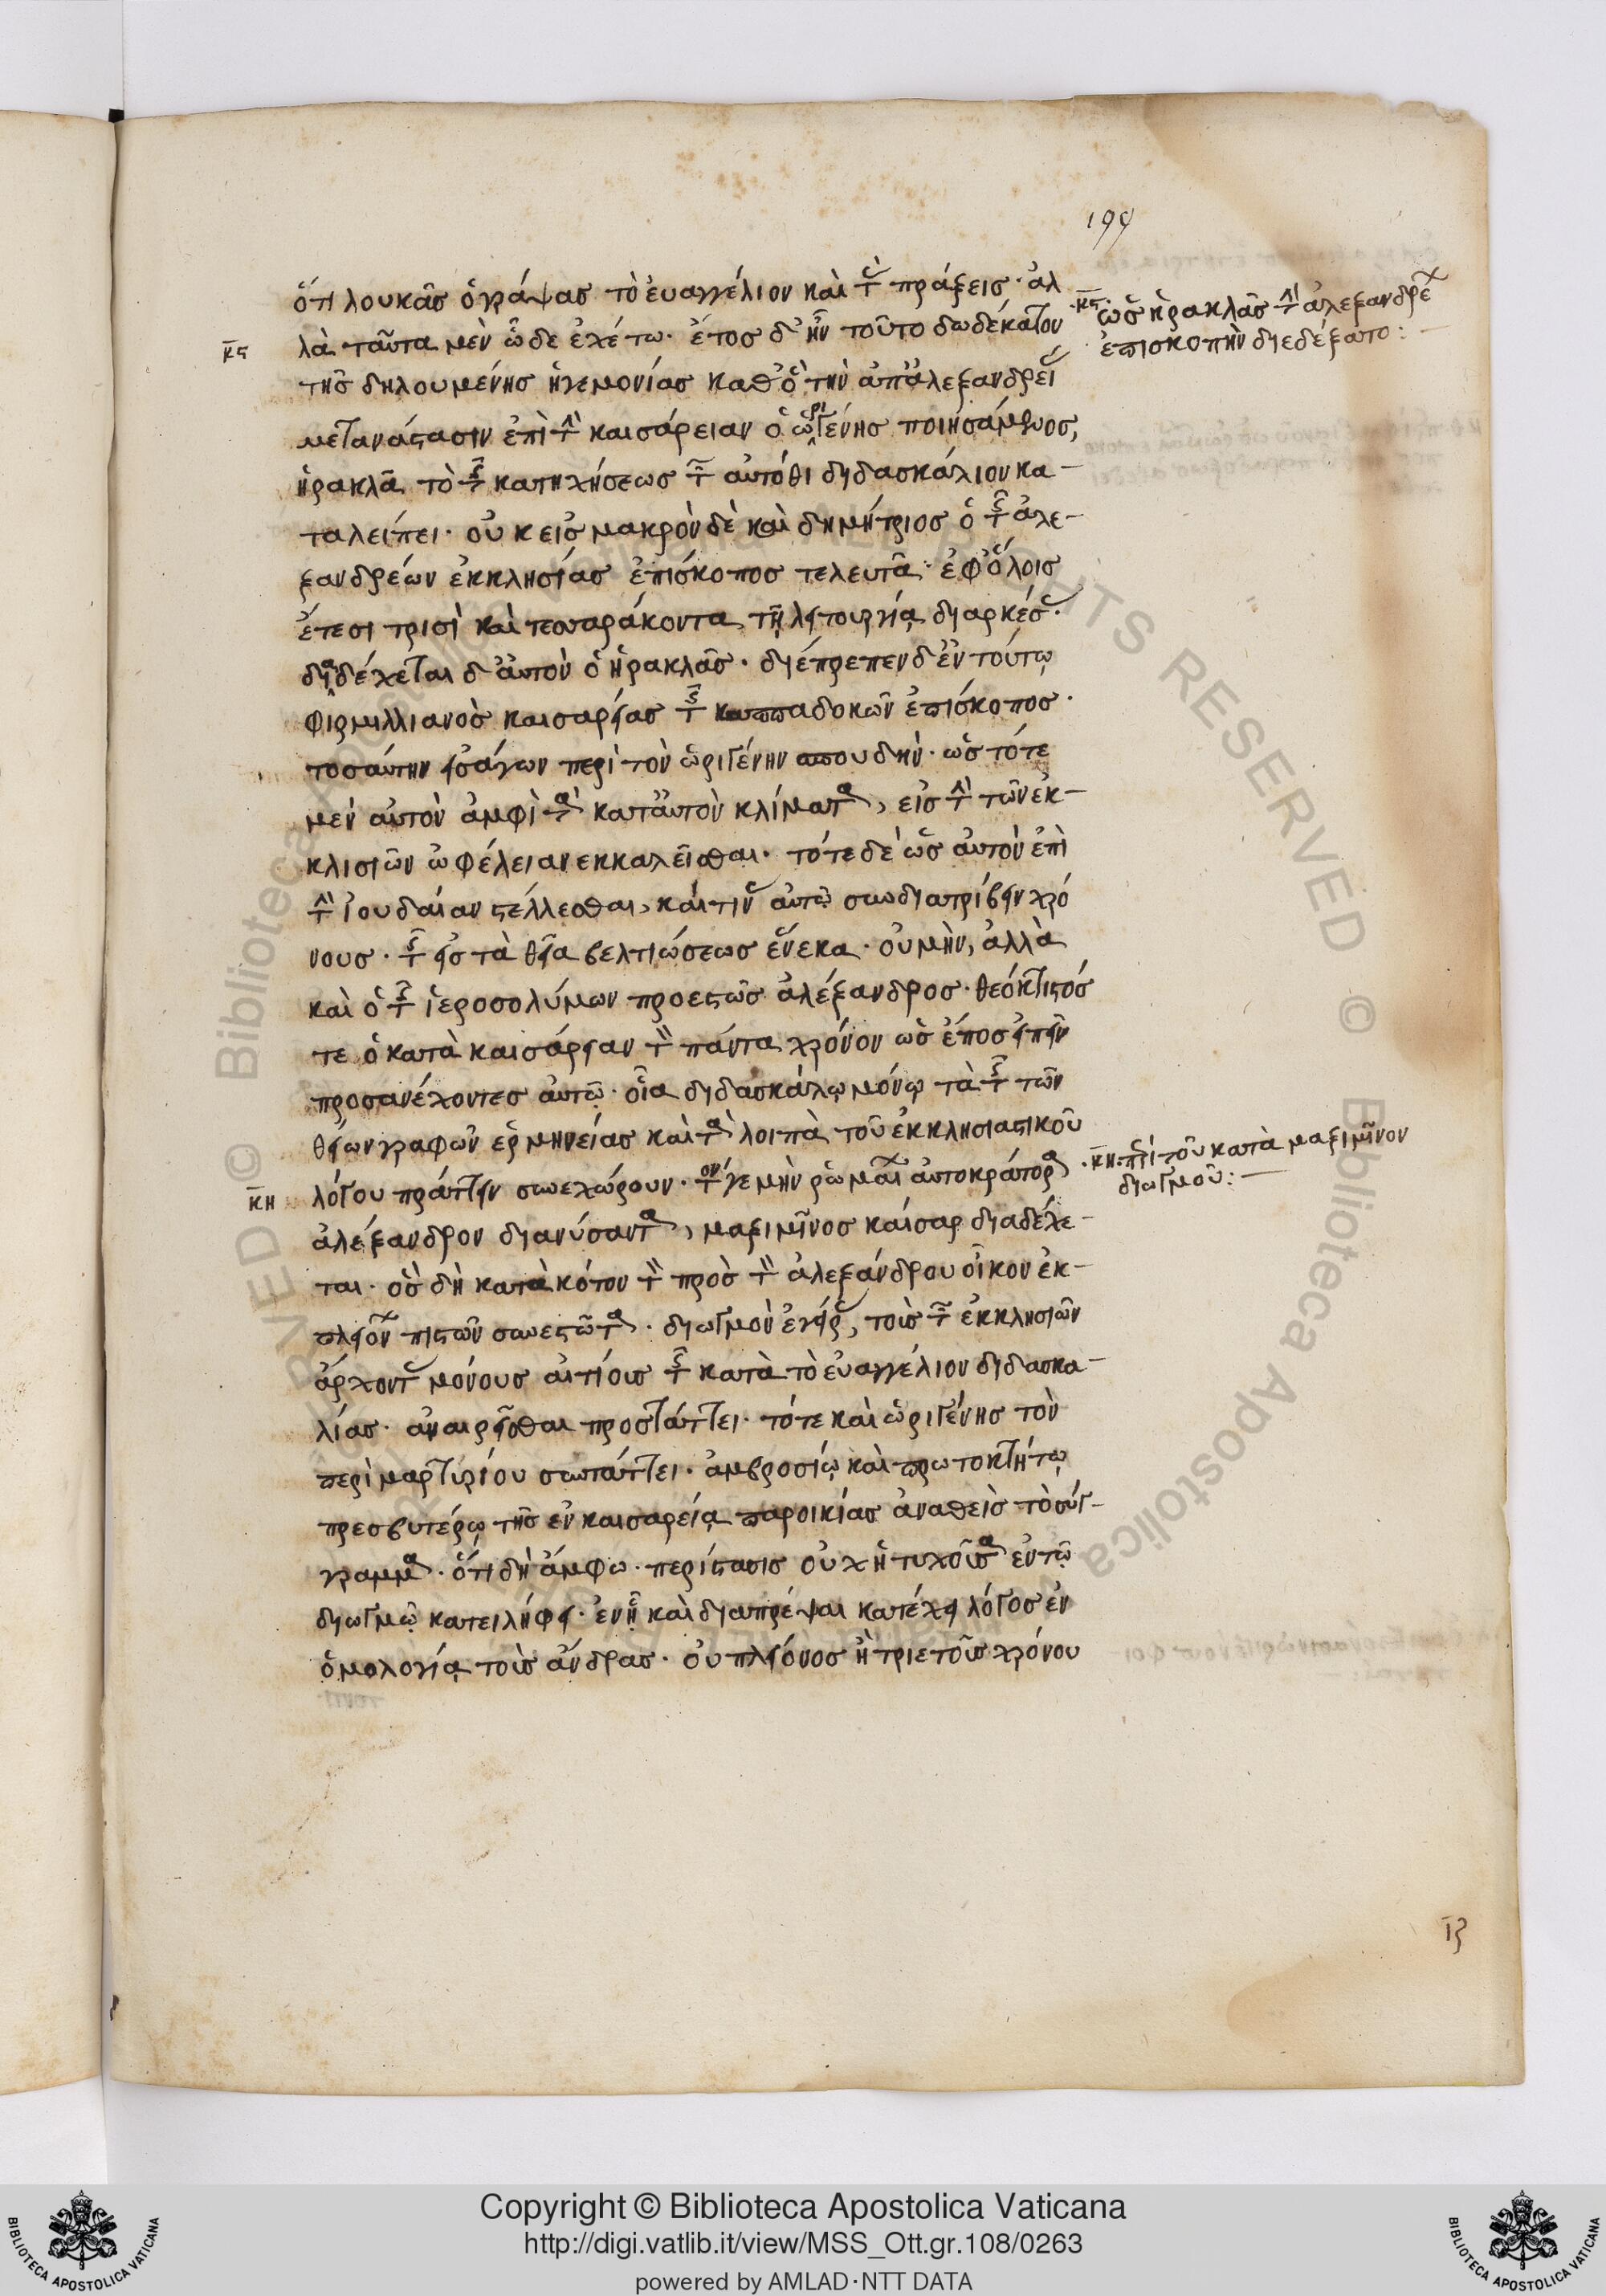 199
ὅτι λουκᾶς ὁ γράψας τὸ ἐυαγγέλιον καὶ τ(ὰς) πράξεις· ἀλ
κς λὰ ταῦτα μὲν ὧδε ἐχέτω· ἔτος δ' ἦν τοῦτο δωδέκατον
·κς· ὡς ἡρακλᾶς τ(ὴν) ἀλεξανδρέ(ων)
ἐπισκοπὴν διεδέξατο:
τῆς δηλουμένης ἡγεμονίας καθ' ὃ τὴν ἀπ' ἀλεξανδρεί(ας)
μετανάστασιν ἐπὶ τ(ὴν) καισάρειαν ὁ ὠριγένης ποιησάμενος,
ἡρακλᾶ τὸ τ(ῆς) κατηχήσεως τ(ῶν) αὐτόθι διδασκάλιον κα-
ταλείπει· οὐκ εἰς μακρὸν δὲ καὶ δημήτριος ὁ τ(ῆς) ἀλε-
ξανδρέων ἐκκλησίας ἐπίσκοπος τελευτᾶ· ἐφ' ὅλοις
ἔτεσι τρισὶ καὶ τεσσαράκοντα τῇ λειτουργίᾳ διαρκέσ(ας)·
διαδέχεται δ' ἀυτὸν ὁ ἡρακλᾶς· διέπρεπεν δ' ἐν τούτῳ
φιρμιλλιανὸς καισαρείας τ(ῆς) καππαδοκῶν ἐπίσκοπος·
τοσαύτην εἰσάγων περὶ τὸν ὠριγένην σπουδὴν· ὡς τότε
μὲν αὐτὸν ἀμφὶ τὰ κατ' ἀυτὸν κλίματα, εἰς τ(ὴν) τῶν ἐκ-
κλισιῶν ὠφέλειαν εκκαλεῖσθαι· τότε δὲ ὡς αὐτὸν ἐπὶ
τ(ὴν) ἰουδαίαν στέλλεσθαι, καί τιν(ας) αὐτῷ συνδιατρίβειν χρό
νους· τ(ῆς) εἰς τὰ θεῖα βελτιώσεως ἕνεκα· οὐ μὴν, ἀλλὰ
καὶ ὁ τ(ῶν) ἱεροσολύμων προεστὼς ἀλέξανδρος· θεόκτιστός
τε ὁ κατὰ καισάρειαν τ(ὸν) πάντα χρόνον ὡς ἔπος εἰπεῖν
προσανέχοντες αὐτῷ· οἷα διδασκάλῳ μόνῳ τὰ τ(ῆς) τῶν
θείων γραφῶν ἑρμηνείας καὶ τὰ λοιπὰ τοῦ ἐκκλησιαστικοῦ
κη λόγου πράττειν συνεχώρουν· τόν γε μὴν ῥωμαί(ων) ἀυτοκράτορα
·κη· π(ερ)ὶ τοῦ κατὰ μαξιμῖνον
διωγμοῦ:
ἀλέξανδρον διανύσαντα, μαξιμῖνος καίσαρ διαδέχε-
ται· ὃς δὴ κατὰ κότον τ(ὸν) πρὸς τ(ὸν) ἀλεξάνδρου οἶκον ἐκ-
πλειόν(ων) πιστῶν συνεστῶτα· διωγμὸν ἐγείρ(ας), τοὺς τ(ῶν) ἐκκλησιῶν
ἄρχοντ(ας) μόνους αἰτίους τ(ῆς) κατὰ τὸ εὐαγγέλιον διδασκα-
λίας· ἀναιρεῖσθαι προστάττει· τότε καὶ ὠριγένης τὸν
περὶ μαρτυρίου συντάττει· ἀμβροσίῳ καὶ πρωτοκτήτῳ
πρεσβυτέρῳ τῆς ἐν καισαρείᾳ παροικίας ἀναθεὶς τὸ σύγ-
γραμμα· ὅτι δὴ ἄμφω· περίστασις οὐχ ἡ τυχοῦσα ἐν τῷ
διωγμῷ κατειλήφει· ἐν ᾗ καὶ διαπρέψαι κατέχει λόγος ἐν
ὁμολογίᾳ τοὺς ἄνδρας· οὐ πλείονος ἢ τριετοῦς χρόνου
Copyright © Biblioteca Apostolica Vaticana
http://digi.vatlib.it/view/MSS_Ott.gr.108/0263
powered by AMLAD·NTT DATA
BIBLIOTECA APOSTOLICA VATICANA
BIBLIOTECA APOSTOLICA VATICANA